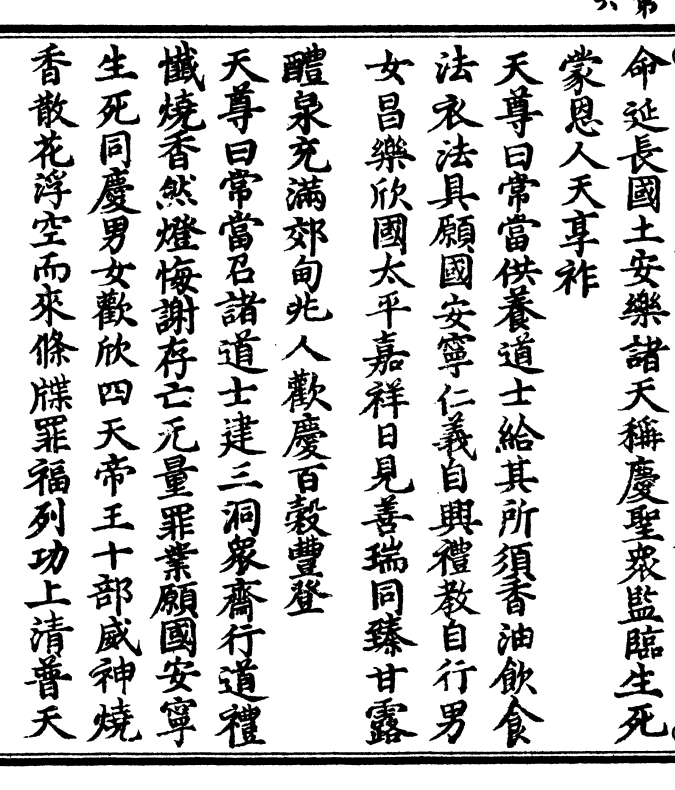 命延長國土安樂諸天稱慶聖眾監臨生死
蒙恩人天享祚
天尊曰常當供養道士給其所須香油飲食
法衣法具願國安寧仁義自興禮教自行男
女昌樂欣國太平嘉祥日見善瑞同臻甘露
醴泉充滿郊甸兆人歡慶百穀豐登
天尊曰常當召諸道士建三洞眾齋行道禮
懺燒香然燈悔謝存亡无量罪業願國安寧
生死同慶男女歡欣四天帝王十部威神燒
香散花浮空而來條牒罪福列功上清普天